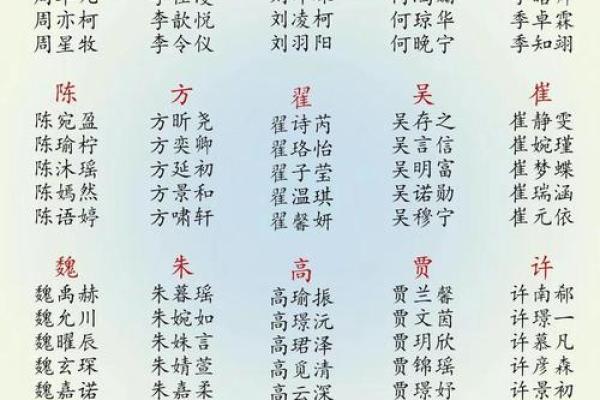 周亦柯 李歆悦 刘凌柯 何琼华 季卓霖
周星牧 李令仪 刘羽阳 何晚宁 季知翊
陈 方 翟 吴 崔
陈宛盈 方昕尧 翟诗芮 吴存之 崔静雯
陈瑜柠 方奕卿 翟珞怡 吴言信 崔婉瑾
陈沐瑶 方延初 翟子莹 吴明富 崔梦蝶
陈嫣然 方景和 翟温琪 吴诺勋 崔瑞涵
陈语婷 方啸轩 翟馨妍 吴穆宁 崔元依
魏 朱 高 贾 许
魏禹赫 朱暮瑶 高瑜振 贾兰馨 许南郁
魏允川 朱婉如 高璟沅 贾文茵 许璟一
魏曜辰 朱姝言 高珺泽 贾玥欣 许慕凡
魏玄琛 朱婧萱 高觅清 贾锦瑶 许彦森
魏嘉诺 朱嘉柔 高云深 贾璟妤 许景初